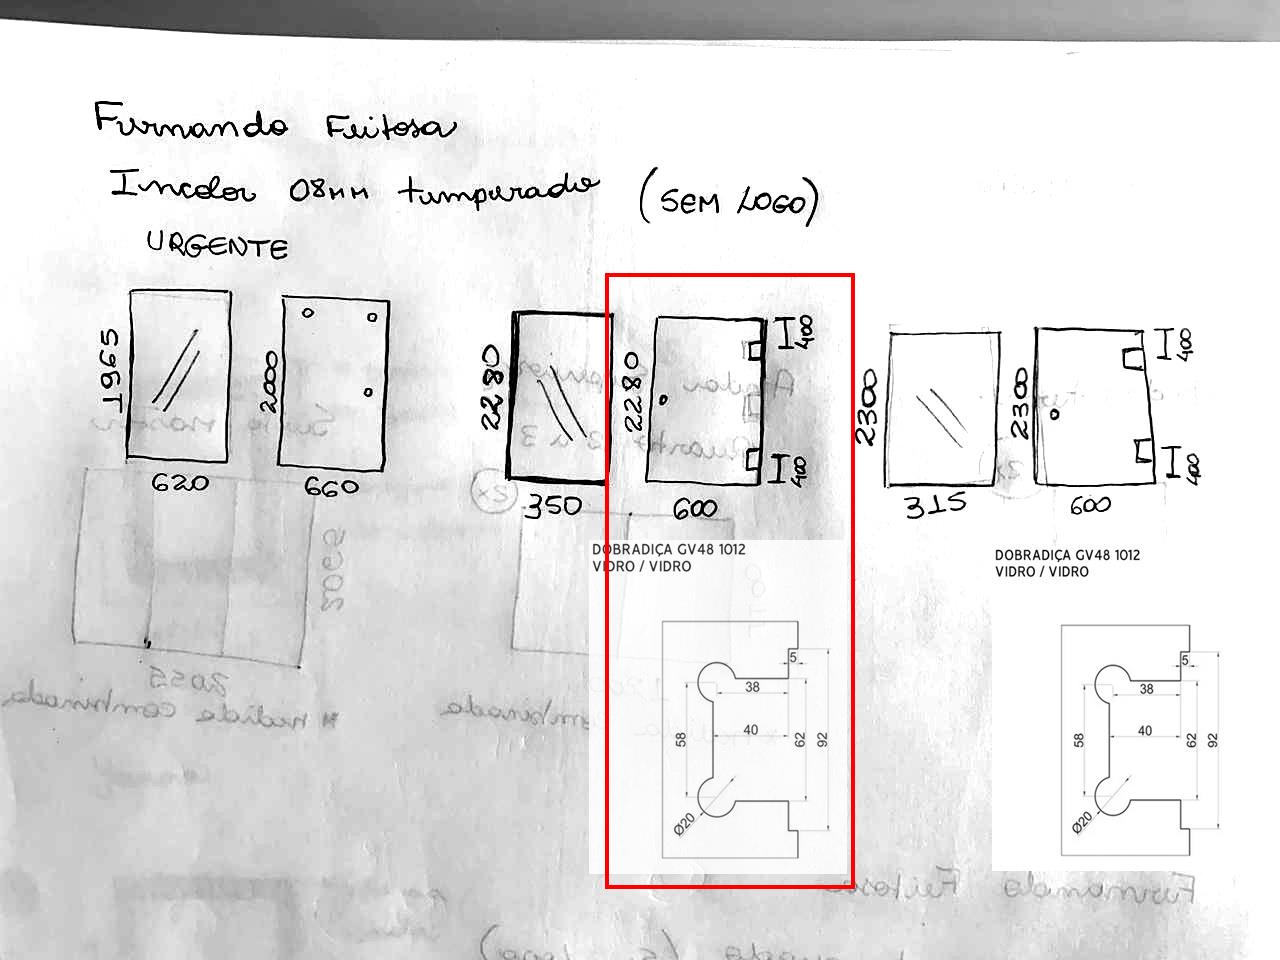 Fernando Feitosa
Incolor 08mm temperado (SEM LOGO)
URGENTE
1965
620
2000
660
2280
350
2280
400
400
600
2300
315
2300
400
400
600
DOBRADIÇA GV48 1012
VIDRO / VIDRO
5
38
40
58
62
92
Ø20
DOBRADIÇA GV48 1012
VIDRO / VIDRO
5
38
40
58
62
92
Ø20
2065
2055
* medida combinada
Fernando Feitosa